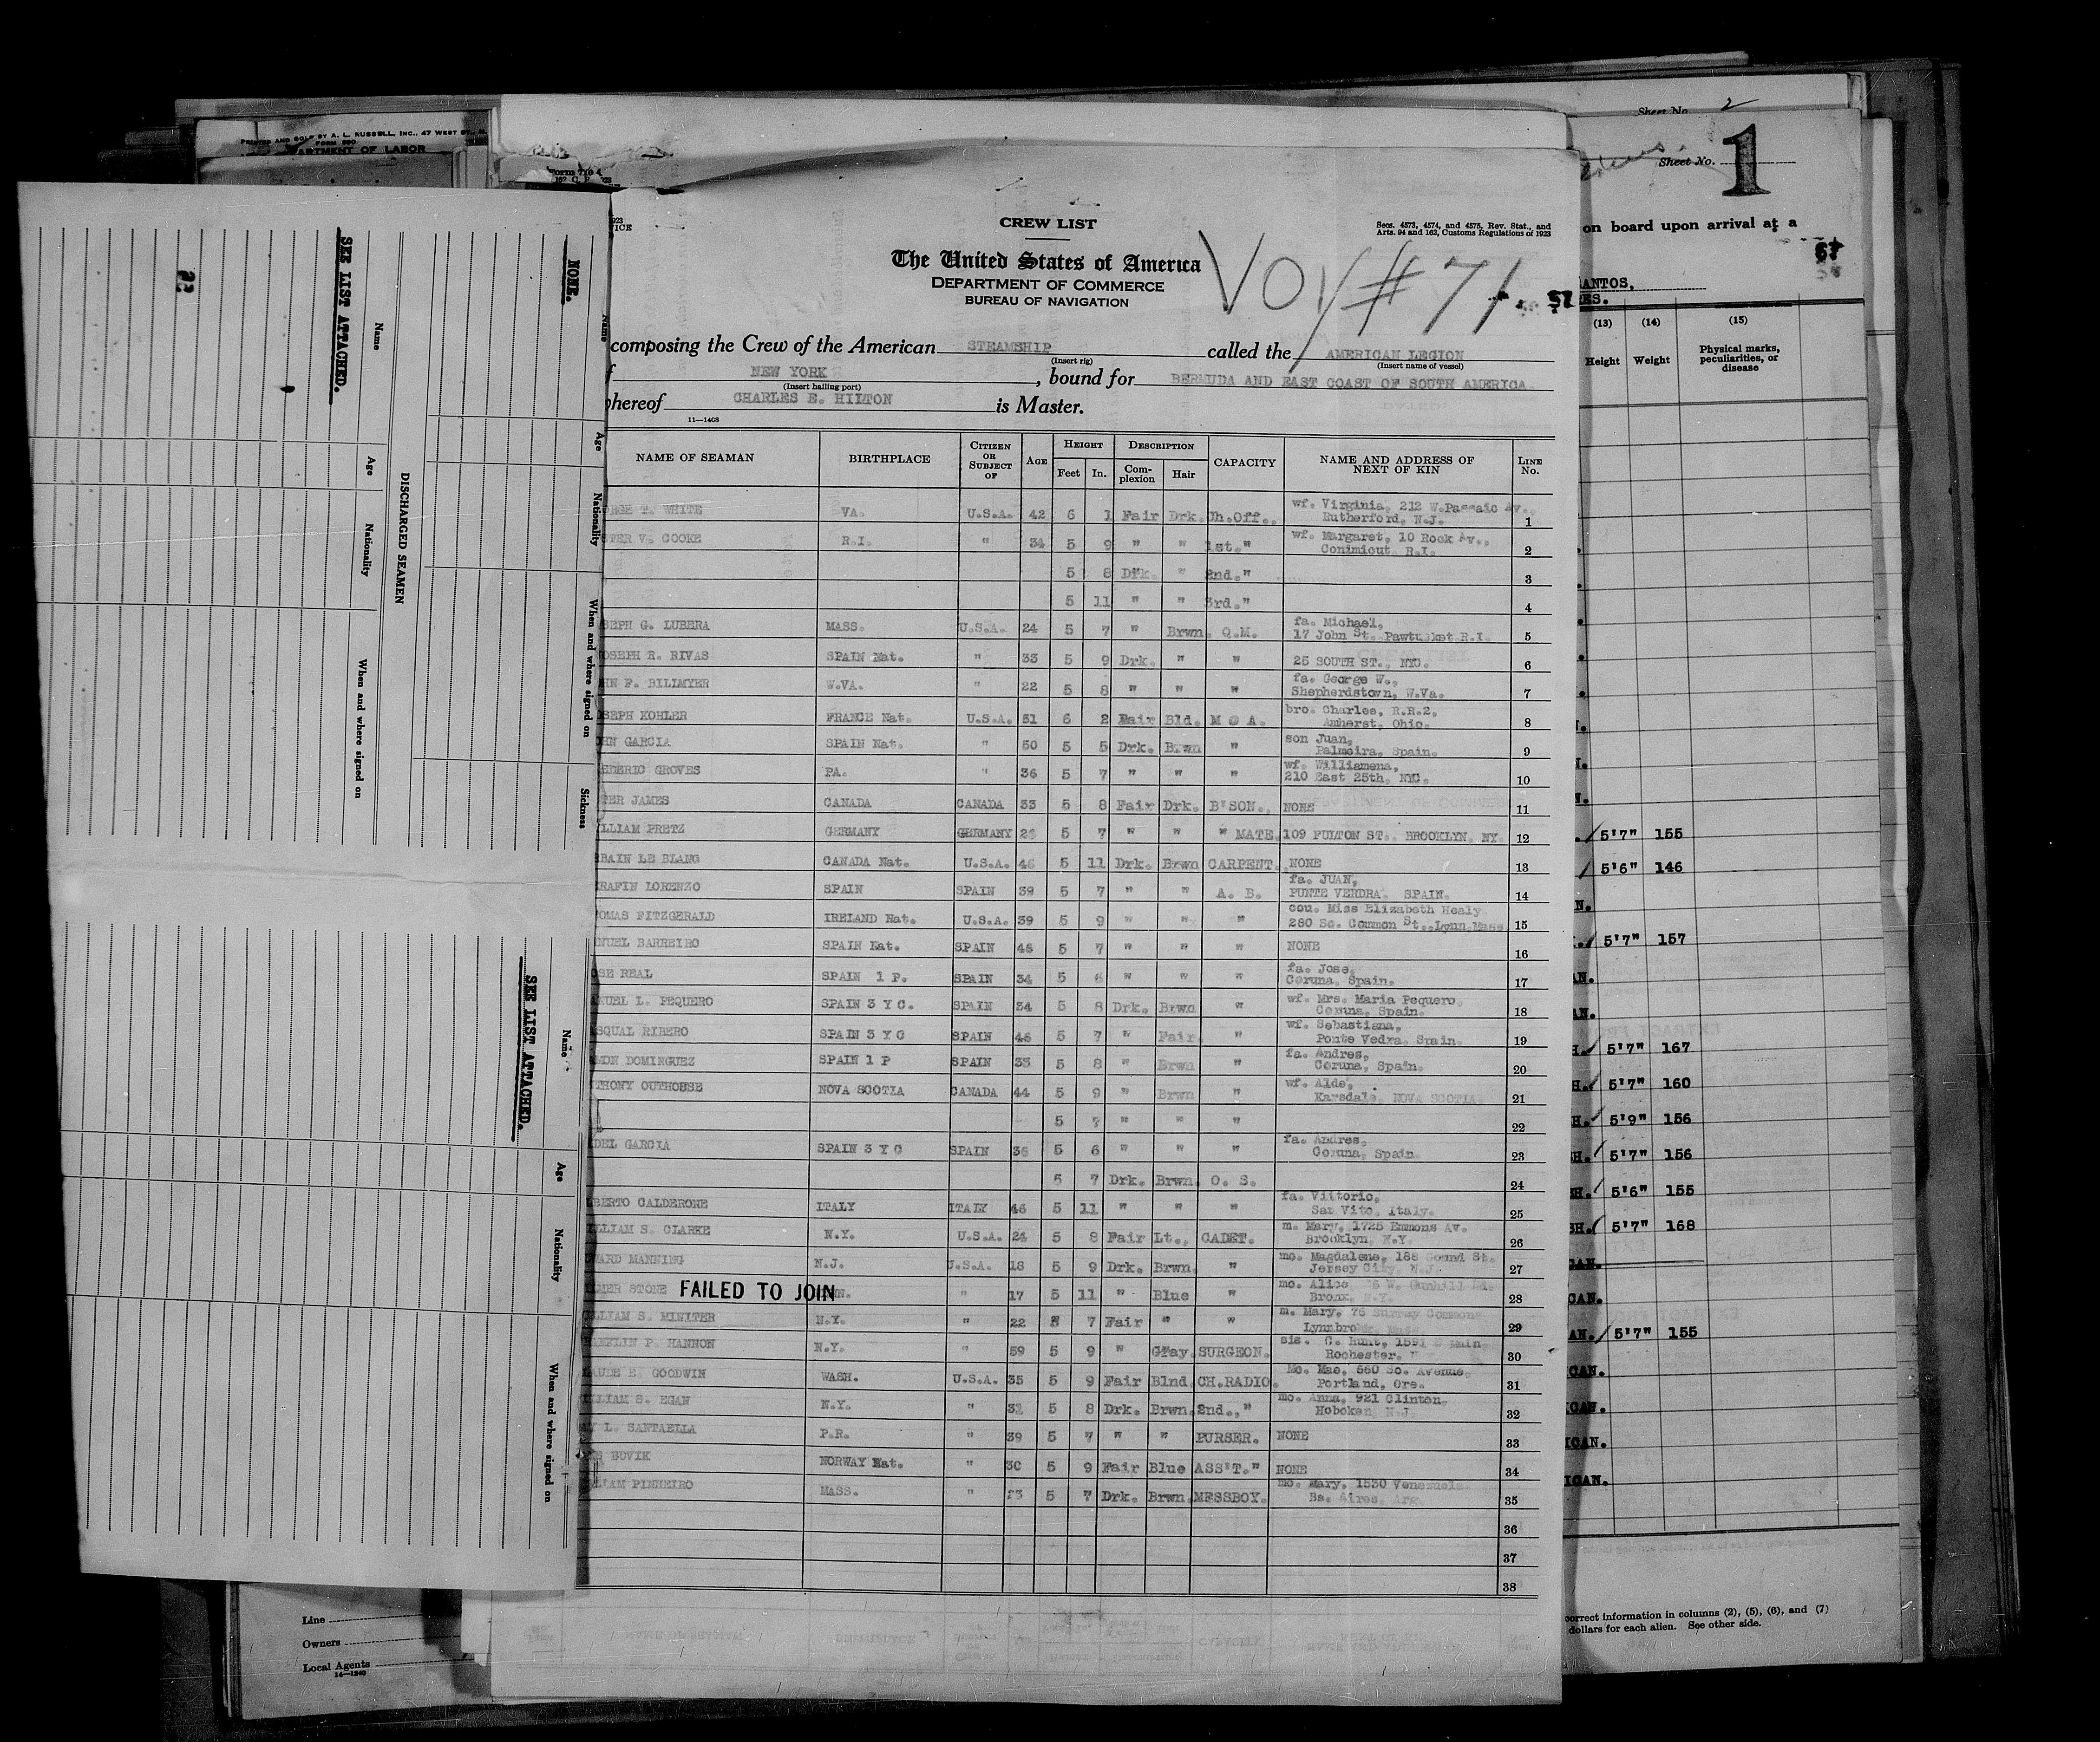 PRINTED AND SOLD BY A. L. RUSSELL, INC., 47 WEST
FORM 590
ARTMENT OF LABOR
Form 710
Sheet No. 2
Sheet No. 1
on board upon arrival at a
67
ANTOS,
ES.
(13) (14) (15)
Height Weight Physical marks, peculiarities, or disease
CREW LIST
Secs. 4573, 4574, and 4575, Rev. Stat., and
Arts. 94 and 162, Customs Regulations of 1923
The United States of America
DEPARTMENT OF COMMERCE
BUREAU OF NAVIGATION
VOY # 71
composing the Crew of the American STEAMSHIP called the AMERICAN LEGION
(Insert rig) (Insert name of vessel)
NEW YORK, bound for BERMUDA AND EAST COAST OF SOUTH AMERICA
(Insert hailing port)
hereof CHARLES E. HILTON is Master.
11—1408
NAME OF SEAMAN BIRTHPLACE CITIZEN OR SUBJECT OF AGE HEIGHT Feet In. DESCRIPTION Complexion Hair CAPACITY NAME AND ADDRESS OF NEXT OF KIN LINE No.
RGE T. WHITE VA. U.S.A. 42 6 1 Fair Drk. Ch.Off. wf. Virginia, 212 W.Passaic Av., Rutherford, N.J. 1
TER V. COOKE R.I. " 34 5 9 " " 1st." wf. Margaret, 10 Rock Av., Conimicut R.I. 2
5 8 Drk. " 2nd." 3
5 11 " " 3rd." 4
SEPH G. LUBERA MASS. U.S.A. 24 5 7 " Brwn. Q.M. fa. Michael, 17 John St. Pawtucket R.I. 5
OSEPH R. RIVAS SPAIN Nat. " 33 5 9 Drk. " " 25 SOUTH ST., NYC. 6
HN F. BILLMYER W.VA. " 22 5 8 " " " fa. George W., Shepherdstown, W.Va. 7
SEPH KOHLER FRANCE Nat. U.S.A. 51 6 2 Fair Bld. M @ A. bro. Charles, R.R.2, Amherst, Ohio. 8
HN GARCIA SPAIN Nat. " 50 5 5 Drk. Brwn " son Juan, Palmeira, Spain. 9
EDERIC GROVES PA. " 36 5 7 " " " wf. Williamena, 210 East 25th, NYC. 10
TER JAMES CANADA CANADA 33 5 8 Fair Drk. B'SON. NONE 11
LLIAM PRETZ GERMANY GERMANY 5 7 " " " MATE. 109 FULTON ST., BROOKLYN. NY. 12
BAIN LE BLANG CANADA Nat. U.S.A. 46 5 11 Drk. Brwn CARPENT. NONE 13
RAFIN LORENZO SPAIN SPAIN 39 5 7 " " A. B. fa. JUAN, PUNTE VERDRA. SPAIN. 14
OMAS FITZGERALD IRELAND Nat. U.S.A. 39 5 9 " " " cou. Miss Elizabeth Healy 280 So. Common St., Lynn Mass 15
NUEL BARREIRO SPAIN Nat. SPAIN 45 5 7 " " " NONE 16
SE REAL SPAIN 1 P. SPAIN 34 5 6 " " " fa. Jose, Coruna, Spain. 17
NUEL L. PEQUERO SPAIN 3 Y C. SPAIN 34 5 8 Drk. Brwn " wf. Mrs. Maria Pequero, Coruna, Spain. 18
SQUAL RIBERO SPAIN 3 Y C SPAIN 45 5 7 " Fair " wf. Sebastiana, Ponte Vedra, Spain. 19
DOMINGUEZ SPAIN 1 P SPAIN 33 5 8 " Brwn " fa. Andres, Coruna, Spain. 20
THONY OUTHOUSE NOVA SCOTIA CANADA 44 5 9 " Brwn " wf. Alde, Karsdale, NOVA SCOTIA. 21
5 7 " " " 22
DEL GARCIA SPAIN 3 Y C SPAIN 36 5 6 " " " fa. Andres, Coruna, Spain 23
5 7 Drk. Brwn. O. S. 24
BERTO CALDERONE ITALY ITALY 46 5 11 " " " fa. Vittorio, San Vito, Italy. 25
LLIAM S. CLARKE N.Y. U.S.A. 24 5 8 Fair Lt., CADET. m. Mary, 1725 Emmons Av. Brooklyn, N.Y. 26
WARD MANNING N.J. U.S.A. 18 5 9 Drk. Brwn. " mo. Magdalene, 188 St. Jersey City, N.J. 27
MER STONE FAILED TO JOIN " 17 5 11 " Blue " mo. Alice W. Gunhill Rd. Bronx, N.Y. 28
LLIAM S. MINITER N.Y. " 22 5 7 Fair " " m. Mary, 76 Surrey Commons Lynnbrook 29
P. HANNON N.Y. " 59 5 9 " Gray. SURGEON. sis. C. Hunt, Main Rochester, 30
AUDE E. GOODWIN WASH. U.S.A. 35 5 9 Fair Blnd. CH.RADIO. Mo. Mae, 660 So. Avenue, Portland, Ore. 31
LLIAM S. EGAN N.Y. " 5 8 Drk. Brwn. 2nd.," mo. Anna, 921 Clinton, Hoboken N.J. 32
L. SANTAELLA P.R. " 39 5 7 " " PURSER. NONE 33
BOVIK NORWAY Nat. " 30 5 9 Fair Blue ASS'T." NONE 34
LIAM PINHEIRO MASS. " 23 5 7 Drk. Brwn. MESSBOY. mo. Mary, 1530 Venezuela Bs. Aires, Arg. 35
36
37
38
NONE.
Name Age Nationality When and where signed on Sickness
DISCHARGED SEAMEN
Name Age Nationality When and where signed on
SEE LIST ATTACHED.
22
SEE LIST ATTACHED.
Name Age Nationality When and where signed on
5'7" 155
5'6" 146
5'7" 157
5'7" 167
5'7" 160
5'9" 156
5'7" 156
5'6" 155
5'7" 168
5'7" 155
Line
Owners
Local Agents
14—1240
correct information in columns (2), (5), (6), and (7)
dollars for each alien. See other side.